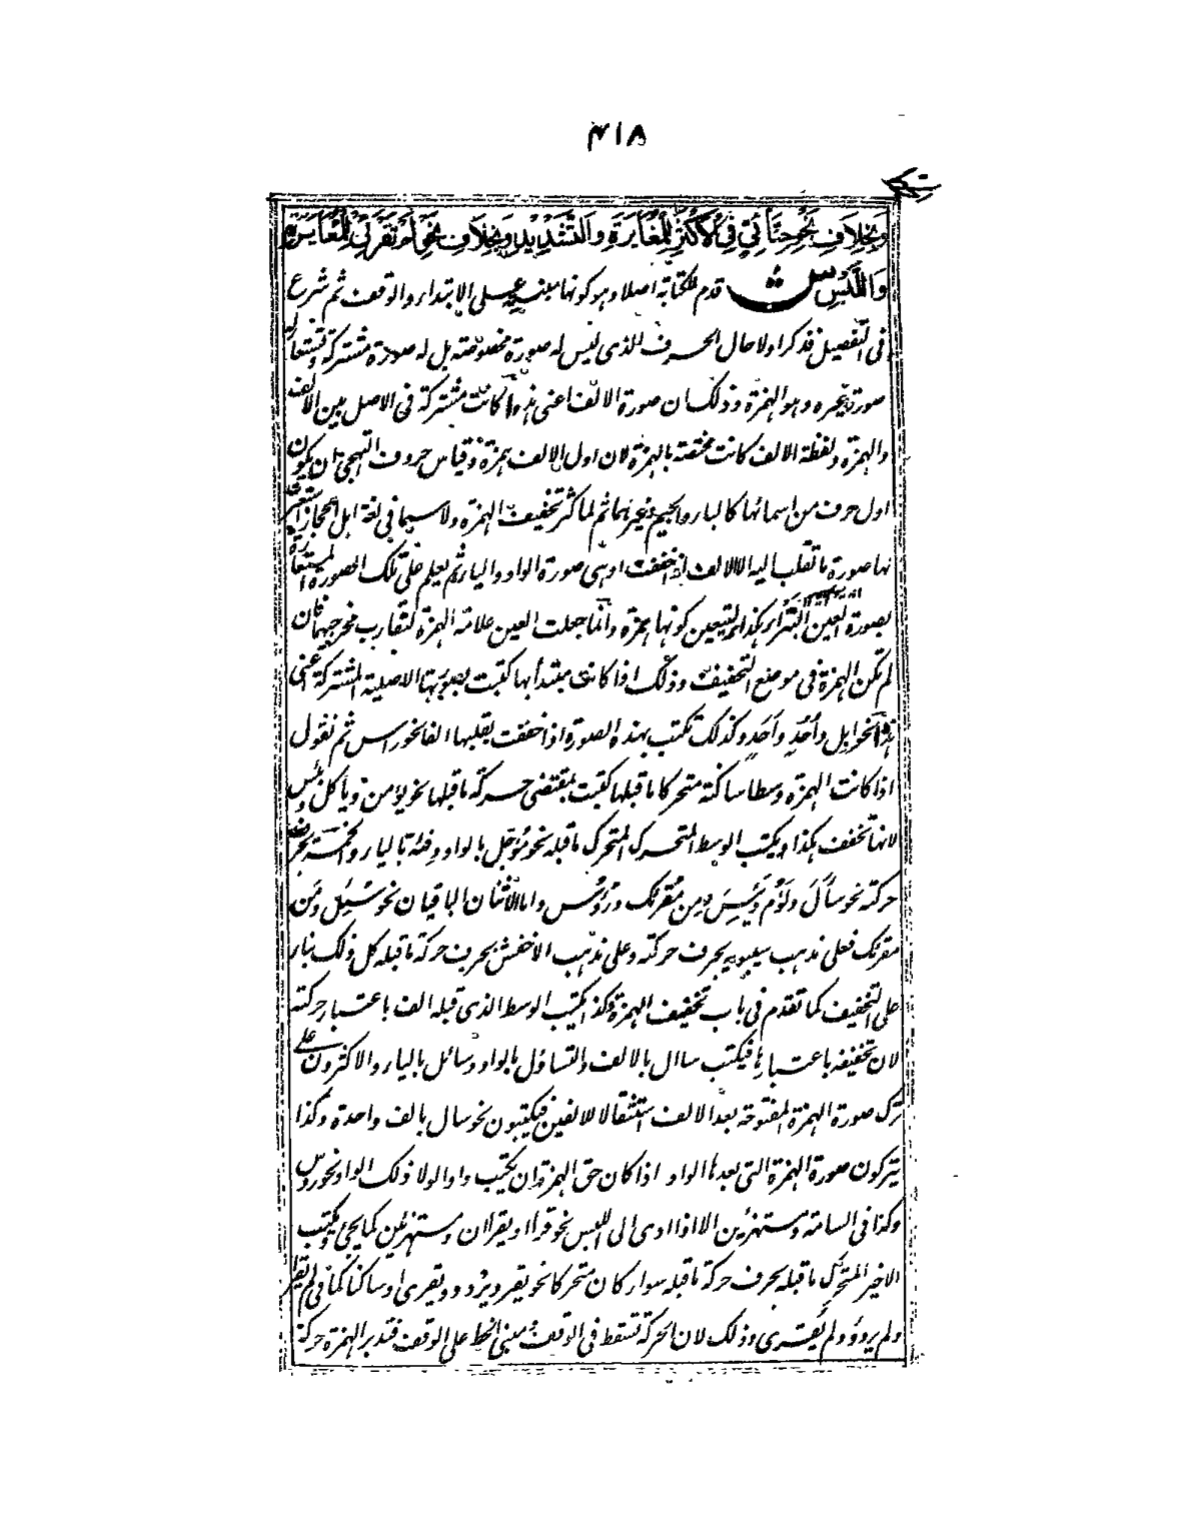 ۴۱۸
وَبِخِلَافِ نَحْوِ حِنَّائِيٍّ فِي الْأَكْثَرِ لِلْمُغَايَرَةِ وَالتَّشْدِيدِ وَبِخِلَافِ نَحْوِ لَمْ تَقْرَئِي لِلْمُغَايَرَةِ
وَاللَّبْسِ ش قدم للكتابة اصلا وهو كونها مبنية على الابتداء والوقف ثم شرع
فى التفصيل فذكر اولا حال الحرف الذى ليس له صورة مخصوصة بل له صورة مشتركة وتستعار له
صورة غيره وهو الهمزة وذلك ان صورة الالف اعنى هذه ا كانت مشتركة فى الاصل بين الالف
والهمزة ولفظة الالف كانت مختصة بالهمزة لان اول الالف همزة وقياس حروف التهجى ان يكون
اول حرف من اسمائها كالباء والجيم وغيرهما ثم لما كثر تخفيف الهمزة ولا سيما فى لغة اهل الحجاز استعير
لها صورة ما تقلب اليه الالف اذا خففت اوهى صورة الواو والياء ثم يعلم على تلك الصورة المستعارة
بصورة العين البتراء هكذا ء ليتعين كونها همزة وانما جعلت العين علامة الهمزة لتقارب مخرجيهما فان
لم تكن الهمزة فى موضع التخفيف وذلك اذا كانت مبتدأ بها كتبت بصورتها الاصلية المشتركة اعنى
هذه ا نحو ابل وأُحُد وأَحَد وكذلك تكتب بهذه الصورة اذا خففت بقلبها الفا نحو راس ثم نقول
اذا كانت الهمزة وسطا ساكنة متحركا ما قبلها كتبت بمقتضى حركة ما قبلها نحو يؤمن وياكل وبئس
لانها تخفف هكذا ويكتب الوسط المتحرك المتحرك ما قبله نحو مؤجل بالواو وفئة بالياء والخمسة بحرف
حركته نحو سأَلَ ولَؤُم ويَئِسَ ومِن مُقرِئك ورُؤُس واما الاثنان الباقيان نحو سُئِل ومن
مقرئك فعلى مذهب سيبويه بحرف حركته وعلى مذهب الاخفش بحرف حركة ما قبله كل ذلك بناء
على التخفيف كما تقدم فى باب تخفيف الهمزة وكذا يكتب الوسط الذى قبله الف باعتبار حركته
لان تخفيفه باعتبارها فيكتب ساال بالالف والتساؤل بالواو وسائل بالياء والاكثرون على
ترك صورة الهمزة المفتوحة بعد الالف استثقالا للالفين فيكتبون نحو سال بالف واحدة وكذا
يتركون صورة الهمزة التى بعدها الواو اذا كان حق الهمزة ان يكتب واوا لولا ذلك الواو نحو رؤس
وكذا فى السامة ومستهزئين الا اذا ادى الى اللبس نحو قراا ويقراان ومستهزئين كما يجئ ويكتب
الاخير المتحرك ما قبله بحرف حركة ما قبله سواء كان متحركا نحو يقرء ويردؤ ويقرى او ساكنا كما فى لم يقرأ
ولم يردؤ ولم يُقرى وذلك لان الحركة تسقط فى الوقف ومبنى الخط على الوقف فتدبر الهمزة حركة